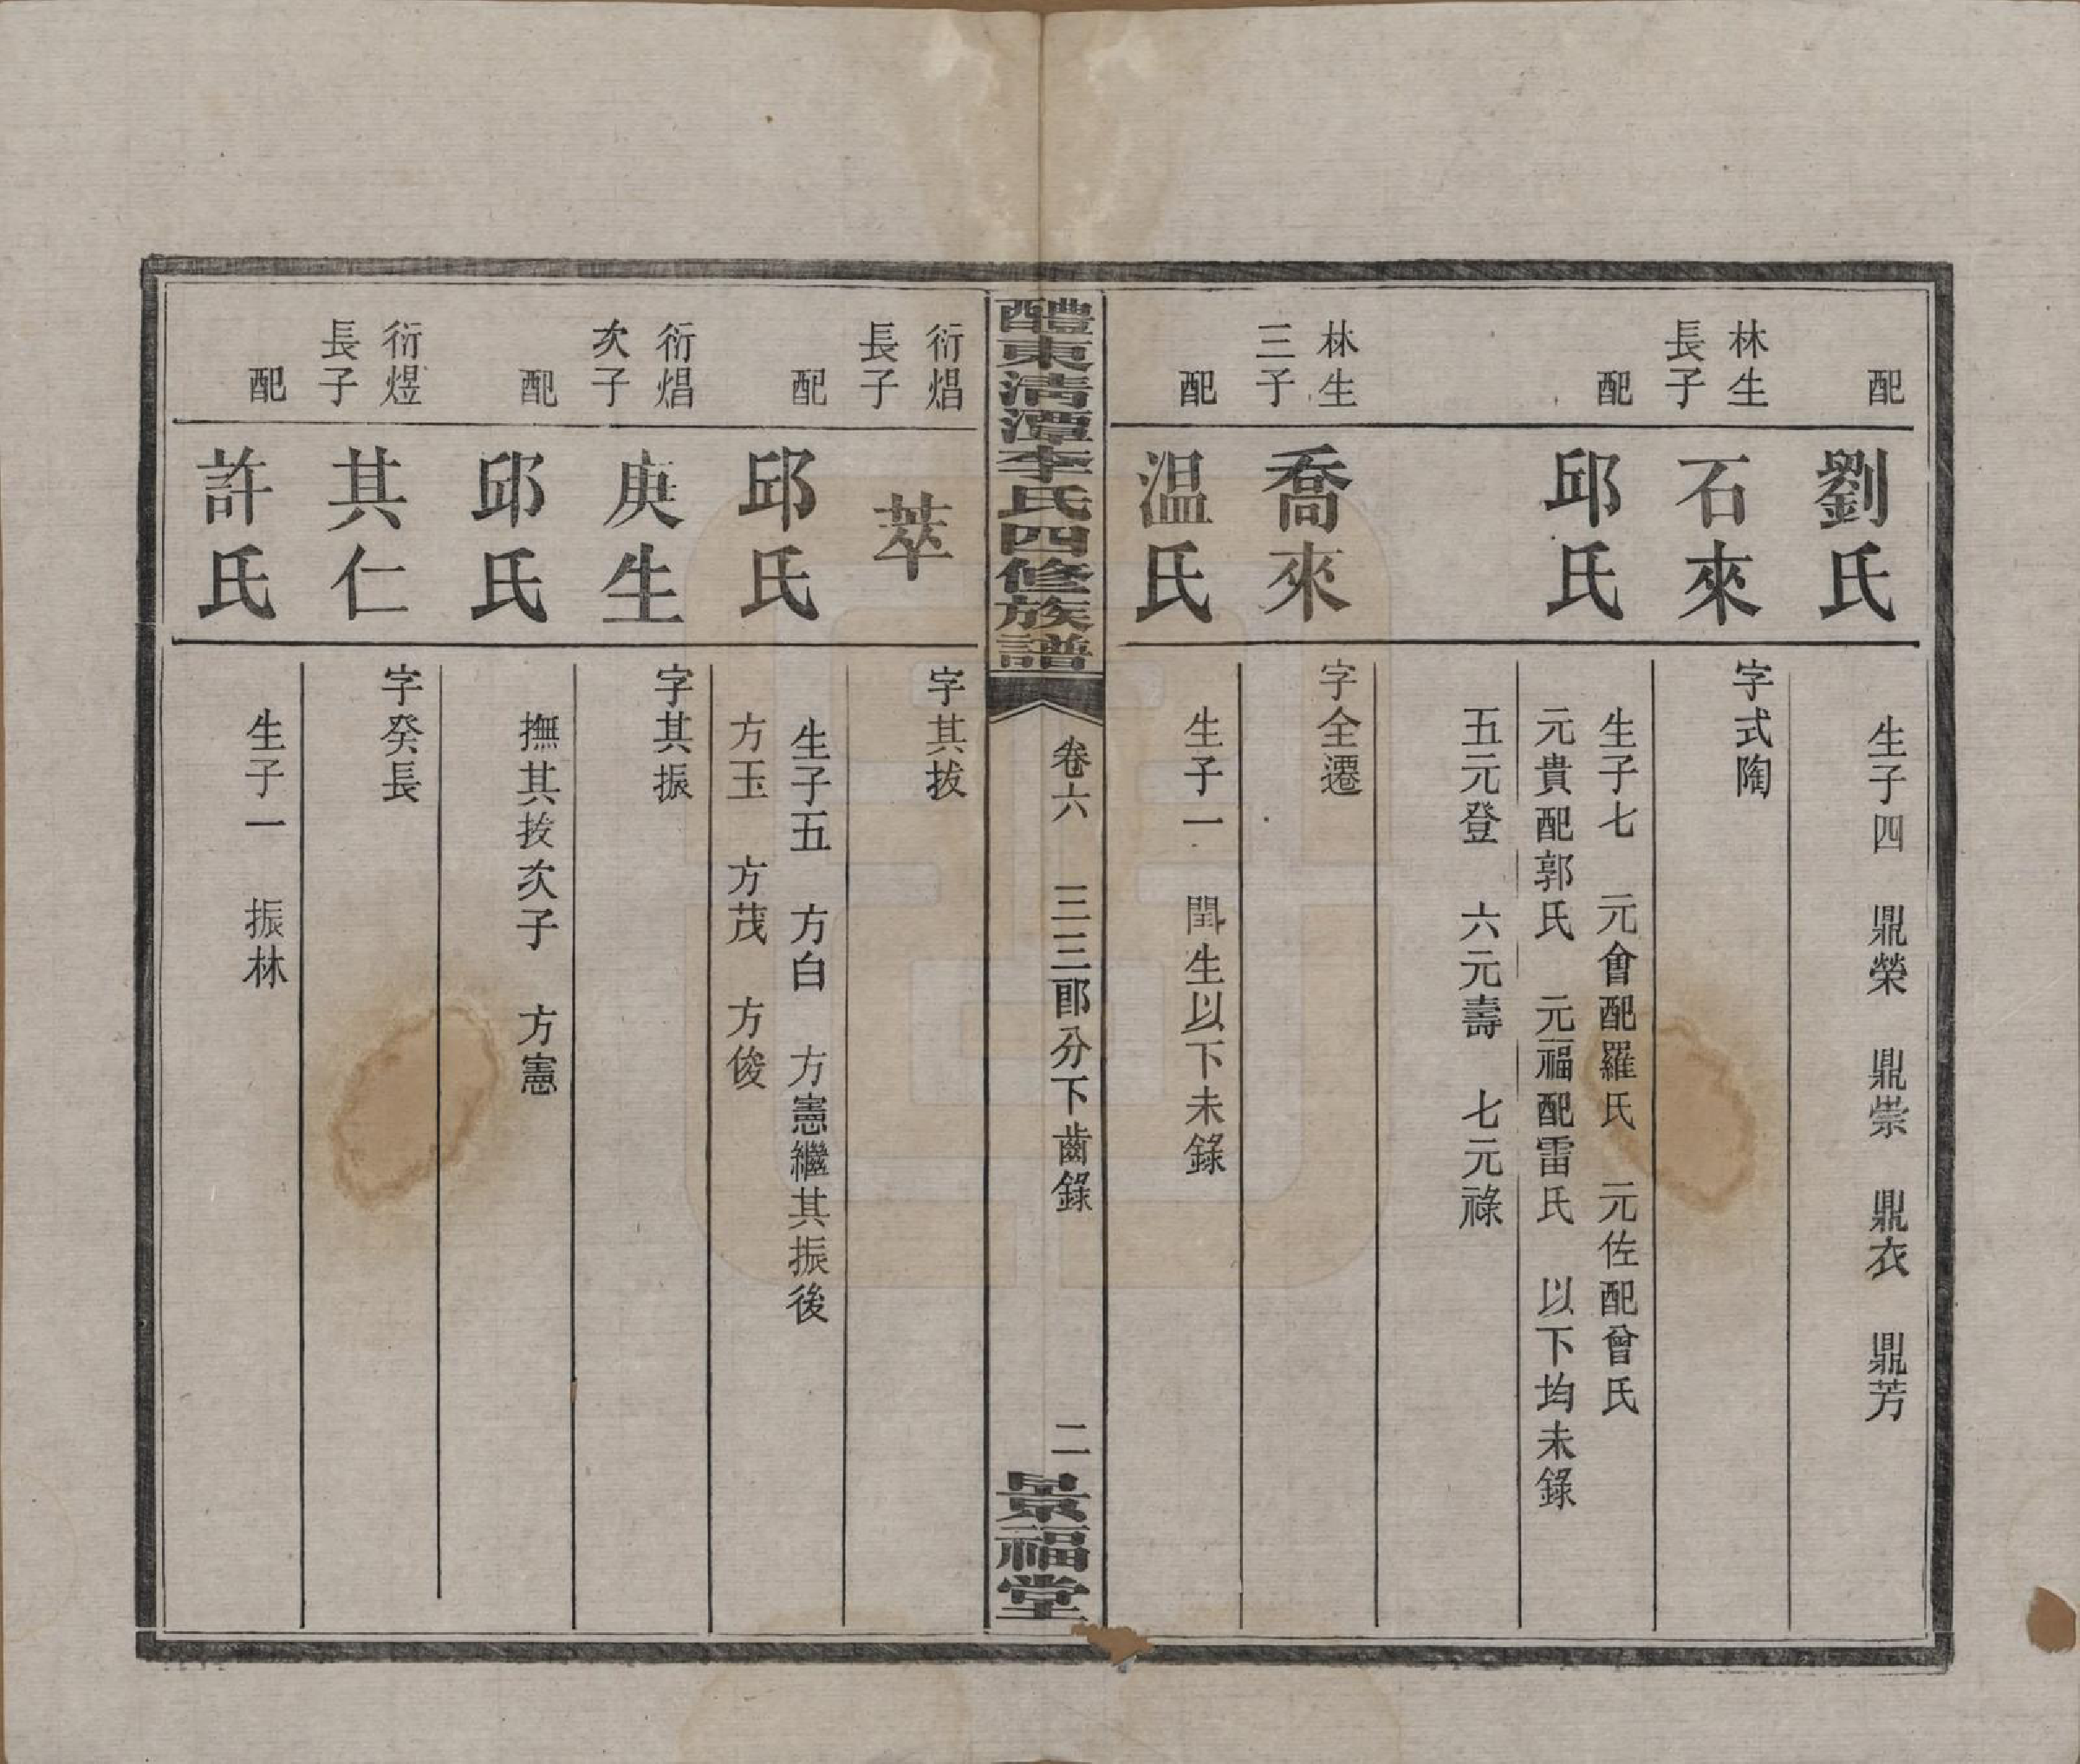 配 劉氏
生子四 鼎榮 鼎崇 鼎衣 鼎芳
林生
長子 石來
字式陶
配 邱氏
生子七 元會配羅氏 元佐配曾氏
元貴配郭氏 元福配雷氏 以下均未錄
五元登 六元壽 七元祿
林生
三子 喬來
字全遷
配 温氏
生子一 閏生以下未錄
醴東清潭李氏四修族譜
卷六 三三郎分下齒錄 二
景福堂
衍焻
長子 萃
字其拔
配 邱氏
生子五 方白 方憲繼其振後
方玉 方茂 方俊
衍焻
次子 庚生
字其振
配 邱氏
撫其拔次子 方憲
衍煜
長子 其仁
字癸長
配 許氏
生子一 振林